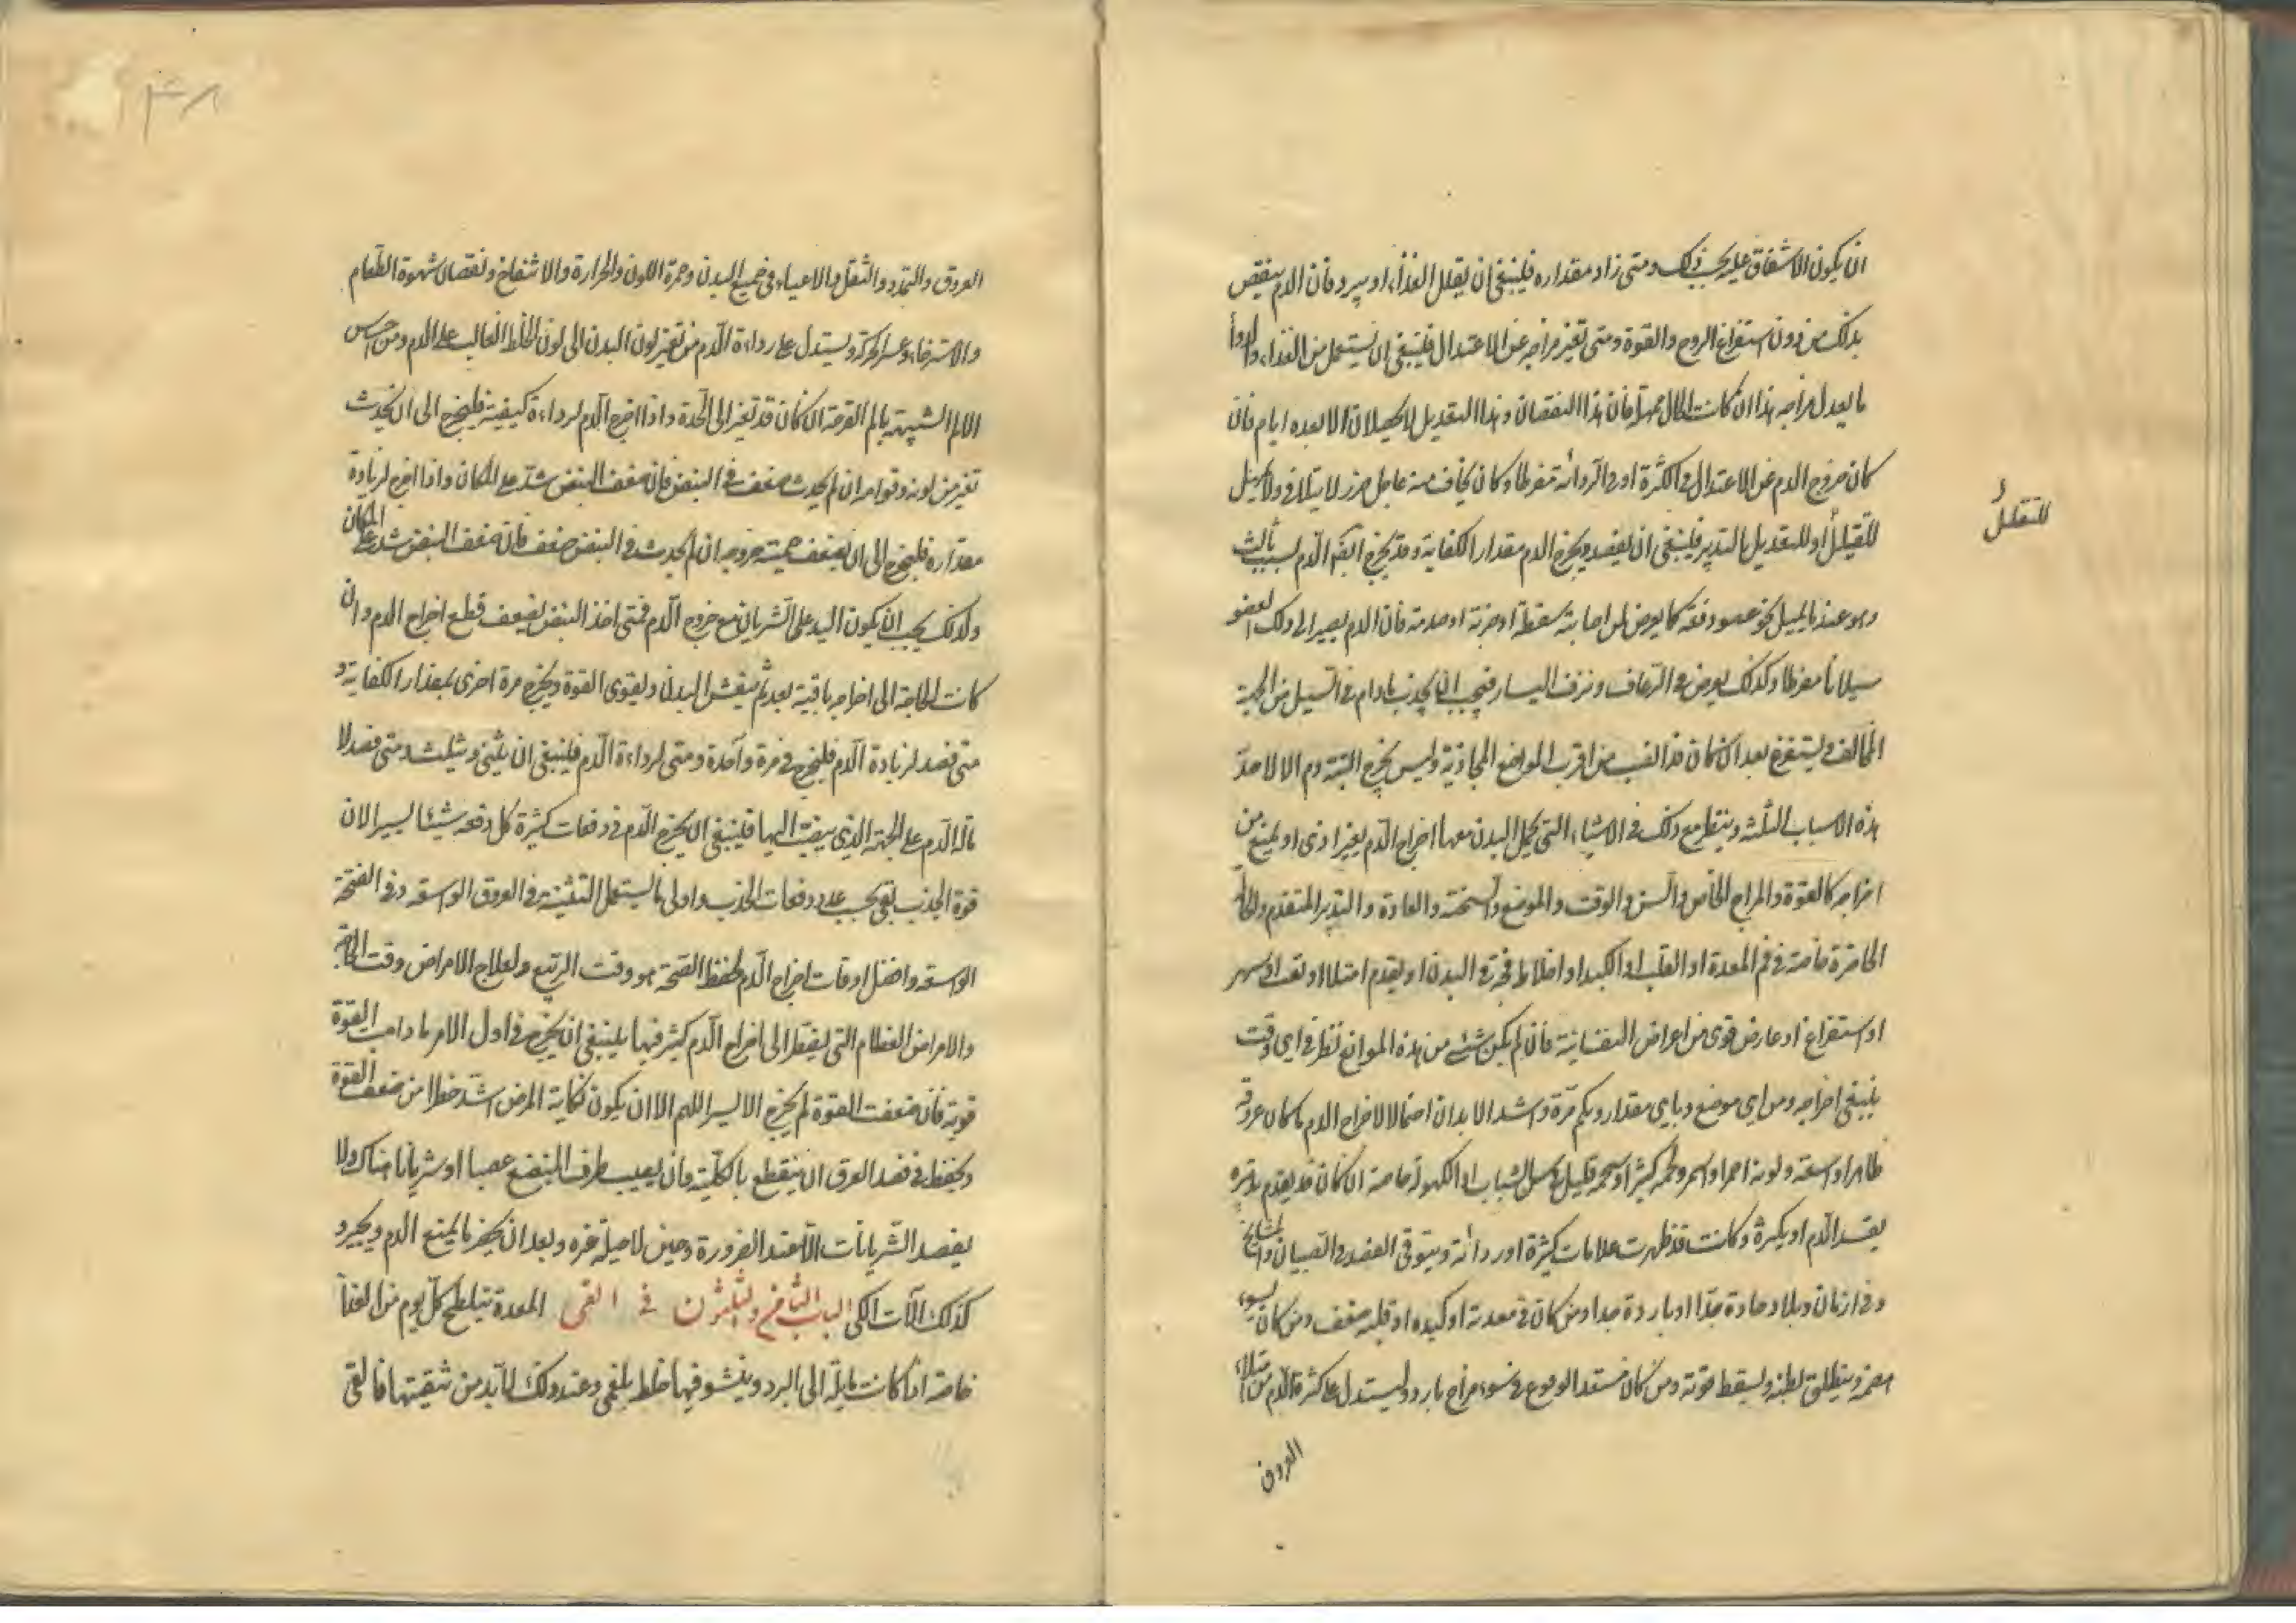 ان يكون الاشفاق عليه بحسب ذلك ومتى زاد مقداره فلينبغى ان يقلل الغذاء او يبرد فان الدم ينقص
بذلك من دون استفراغ الروح والقوة ومتى تغير مزاجه عن الاعتدال فلينبغى ان يستعمل من الغذاء والدوا
ما يعدل مزاجه هذا ان كانت الحال مهلة فان هذا النقصان وهذا التعديل لا يحصلان الا بعده ايام فان
كان خروج الدم عن الاعتدال فى الكثرة او فى الردائة مفرطا وكان يخاف منه عاجل ضرر لا يتلافى ولا يمهل
للتقليل أو للتعديل بالتدبير فلينبغى ان يفصد ويخرج الدم مقدار الكفاية وقد يخرج ايضا الدم لسبب ثالث
وهو عند ما يميل نحو عضو دفعة كما يعرض لمن اصابته سقطة او ضربة او صدمة فان الدم يصير الى ذلك العضو
سيلانا مفرطا وكذلك يعرض فى الرعاف ونزف اليسار فيجب ان يجذب ما دام فى السيل من الجهة
المخالفة ويستفرغ بعد ان كان قد انصب من اقرب المواضع المحاذية وليس يخرج البتة دم الا لاحد
هذه الاسباب الثلثة وينظر مع ذلك فى الاشياء التى يحمل البدن معها اخراج الدم بغير اذى او يمنع من
اخراجه كالقوة والمزاج الخاص والسن والوقت والموضع والسحنة والعادة والتدبير المتقدم والحال
الحاضرة خاصة فى فم المعدة او القلب او الكبد او اخلاط فجة فى البدن او يقدم امتلاء او تعب او سهر
او استفراغ او عارض قوى من اعراض النفسانية فان لم يكن شئ من هذه الموانع نظر فى اى وقت
ينبغى اخراجه ومن اى موضع وباى مقدار وبكم مرة واشد الابدان احتمالا لاخراج الدم ما كان عروقه
ظاهرا واسعة ولونه احمر او اسمر ولحمه كثيرا وشحمه قليل فى سن الشباب او الكهولة خاصة ان كان قد يقدم بتدبيره
يفسد الدم او يكثره وكانت قد ظهرت علامات كثرة او ردائة ويتوقى الفصد فى الصبيان والمشايخ
وفى ازمان وبلاد حادة جدا او باردة جدا ومن كان فى معدته او كبده او قلبه ضعف ومن كان يسوء
هضمه وينطلق بطنه ويسقط قوته ومن كان مستعدا لوقوع فى سوء مزاج بارد ويستدل على كثرة الدم من امتلاء
العروق
للتقليل أ
٣٨
العروق والتمدد والثقل والاعياء فى جميع البدن وحمرة اللون والحرارة والانتفاخ ونقصان شهوة الطعام
والاسترخاء وعسر الحركة ويستدل على رداءة الدم من تغير لون البدن الى لون الخلط الغالب على الدم ومن حس
الالم الشبيهة بالم القرحة ان كان قد تغير الى الحدة واذا اخرج الدم لرداءة كيفية فليخرج الى ان يحدث
تغير من لونه وقوامه ان لم يحدث ضعف فى النبض فان ضعف النبض شد على المكان واذا اخرج لزيادة
مقداره فليخرج الى ان يضعف حمية خروجه ان لم يحدث فى النبض ضعف فان ضعف النبض شد على المكان
ولذلك يجب ان يكون اليد على الشريان مع خروج الدم فمتى اخذ النبض يضعف قطع اخراج الدم وان
كانت الحاجة الى اخراجه باقية بعد ثم ينعش البدن ويقوى القوة ويخرج مرة اخرى بمقدار الكفاية و
متى فصد لزيادة الدم فليخرج فى مرة واحدة ومتى لرداءة الدم فلينبغى ان يثنى ويثلث ومتى فصد لا
مالة الدم على الجهة الذى ينصب اليها فلينبغى ان يخرج الدم فى دفعات كثيرة كل دفعة شيئا يسيرا لان
قوة الجذب يقع بحسب عدد دفعات الجذب واولى ما يستعمل التثنية فى العروق الواسعة وفى الفتحة
الواسعة وافضل اوقات اخراج الدم لحفظ الصحة هو وقت الربيع ولعلاج الامراض وقت الحاجة
والامراض العظام التى يضطر الى اخراج الدم كثير فيها ينبغى ان يخرج فى اول الامر ما دامت القوة
قوية فان ضعفت القوة لم يخرج الا اليسير اللهم الا ان يكون نكاية المرض اشد خطرا من ضعف القوة
ويحفظ فى فصد العرق ان ينقطع بالكلية وان يصيب طرف المبضع عصبا او شريانا هناك ولا
يفصد الشريانات الا عند الضرورة وحين لا حيلة غيره وبعد ان يحضر ما يمنع الدم ويحيرو
كذلك آلات الكى الباب الثامن والثلثون فى القى المعدة تتلطخ كل يوم من الغذا
خاصة اذا كانت مايلة الى البرد وينشو فيها خلط بلغمى وعند ذلك لا بد من تنقيتها فالقى